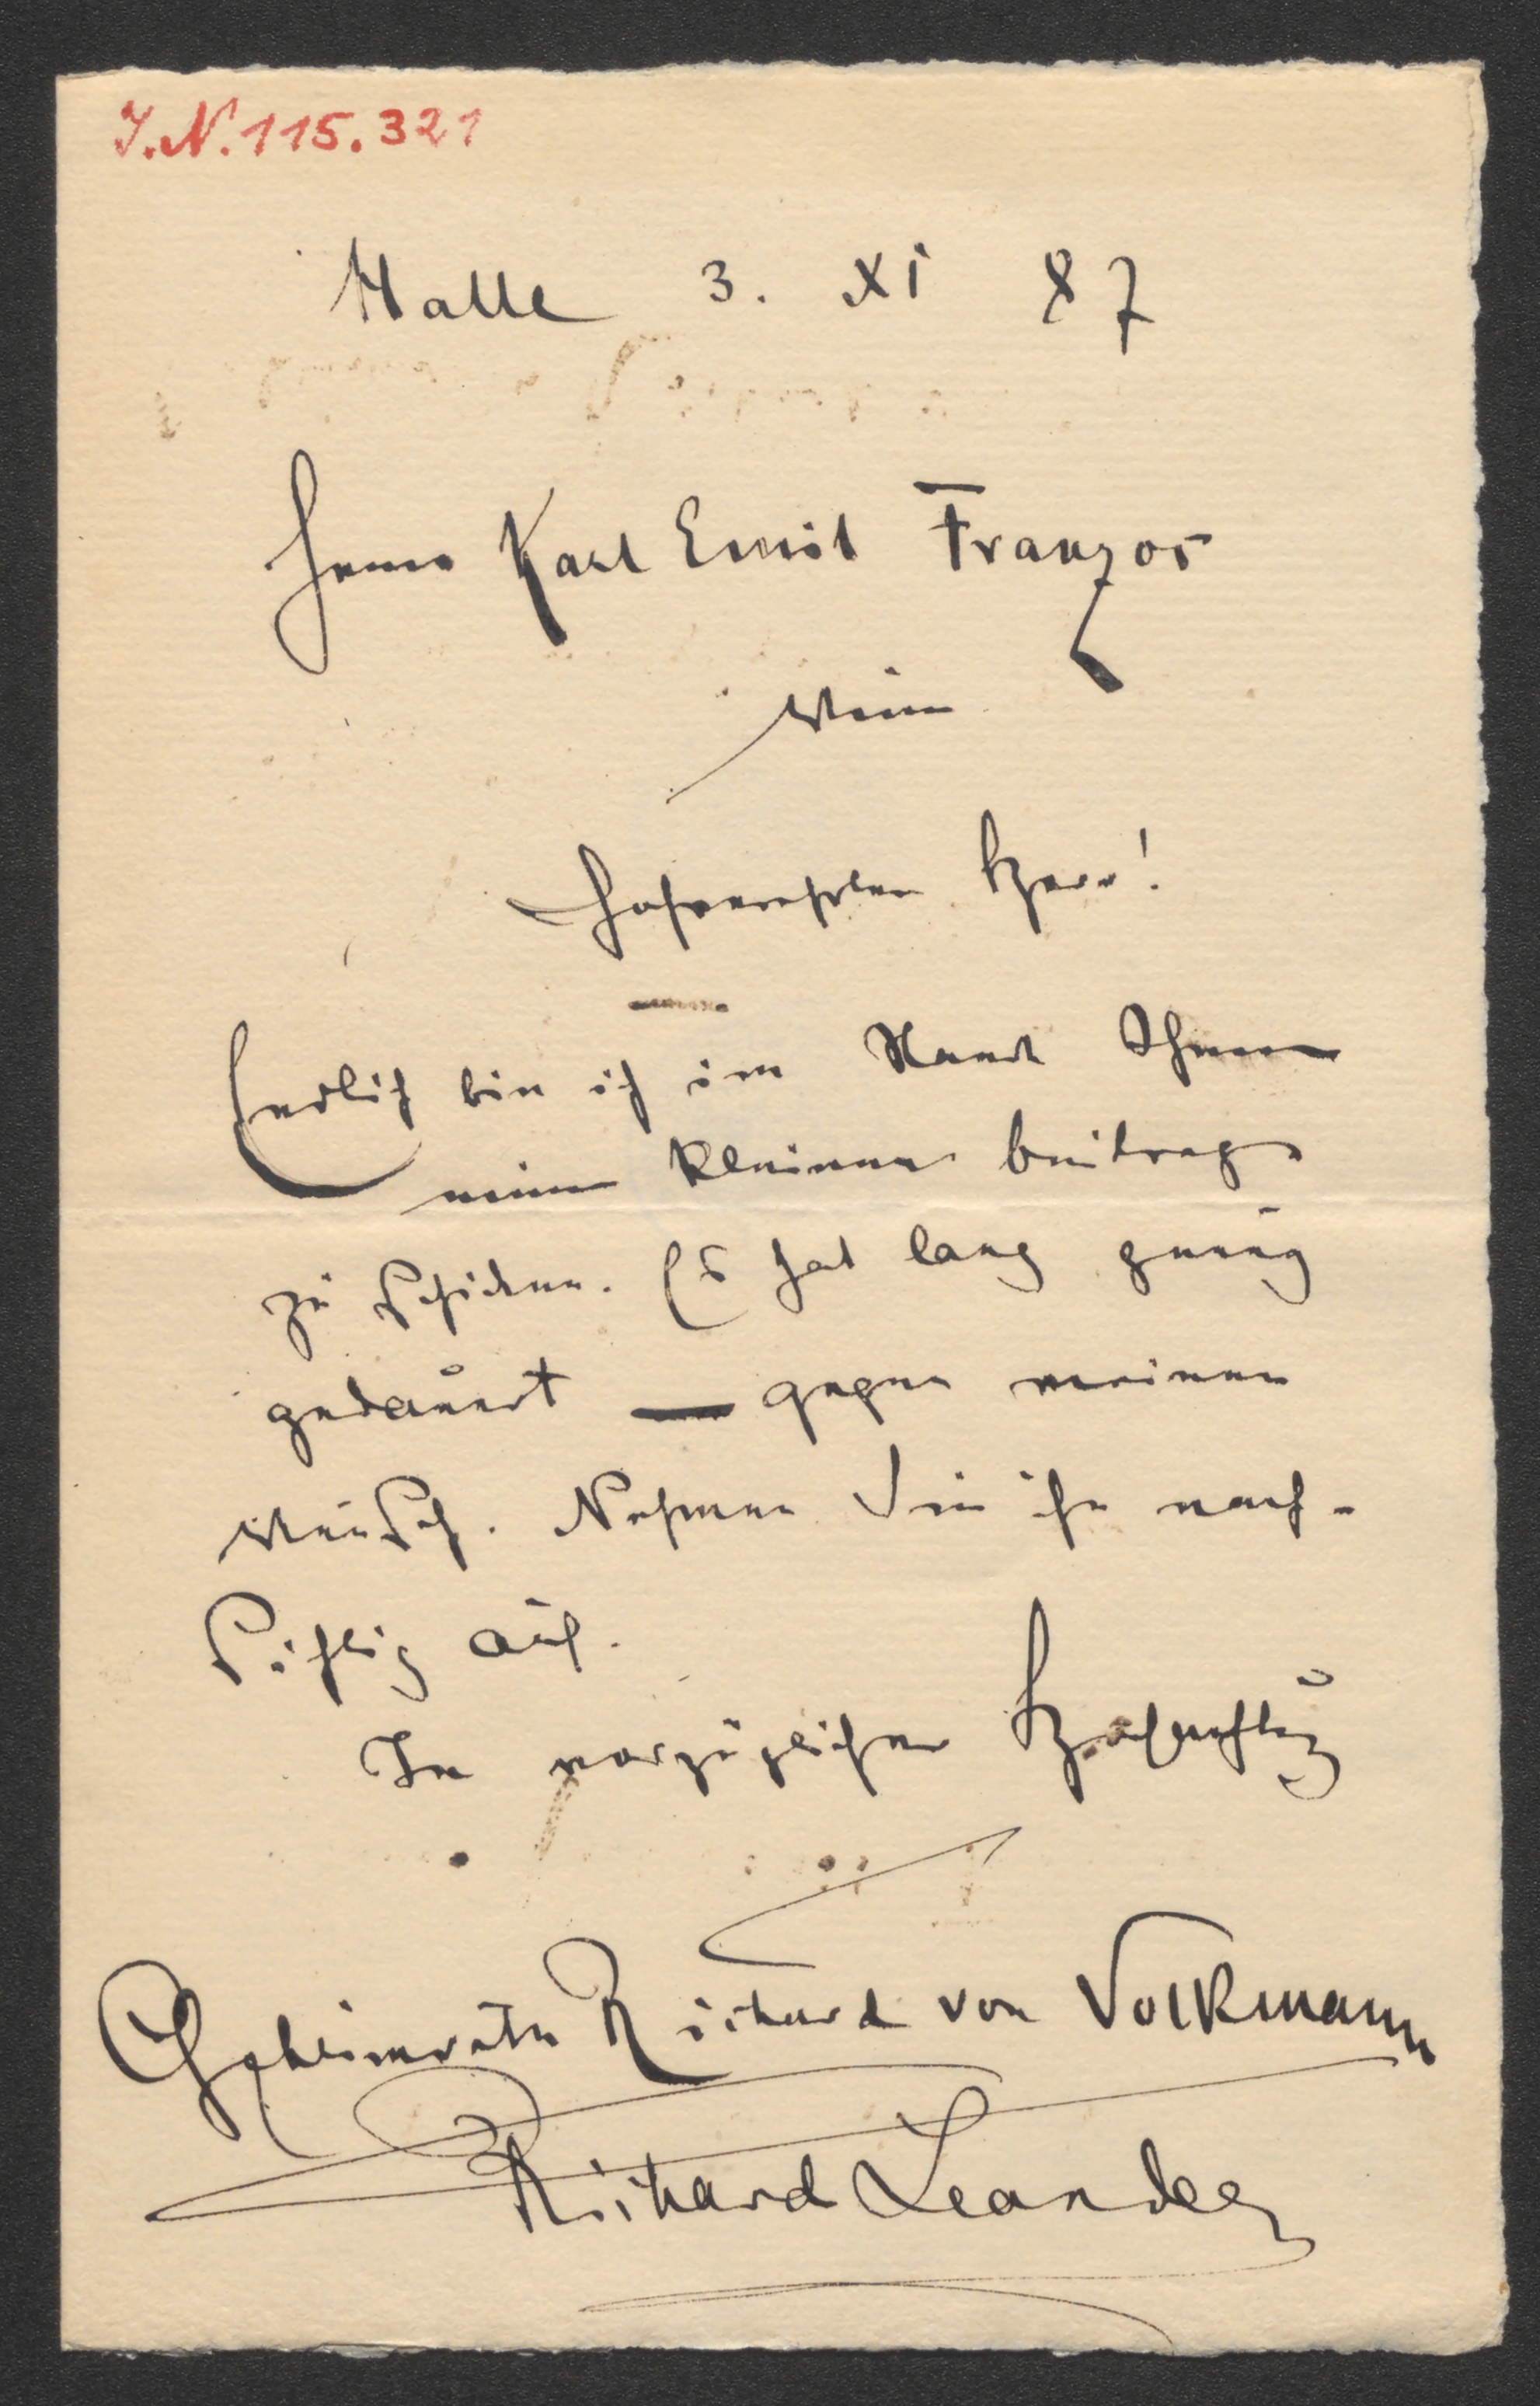 I.N. 115.321
Halle 3. XI 87
Herrn Karl Emil Franzos
Wien
Hochverehrter Herr!
Endlich bin ich im Stande Ihnen
einen kleinen Beitrag
zu schicken. Es hat lang genug
gedauert — gegen meinen
Wunsch. Nehmen Sie ihn nach-
sichtig auf.
In vorzüglicher Hochachtung
Geheimrath Richard von Volkmann
Richard Leander